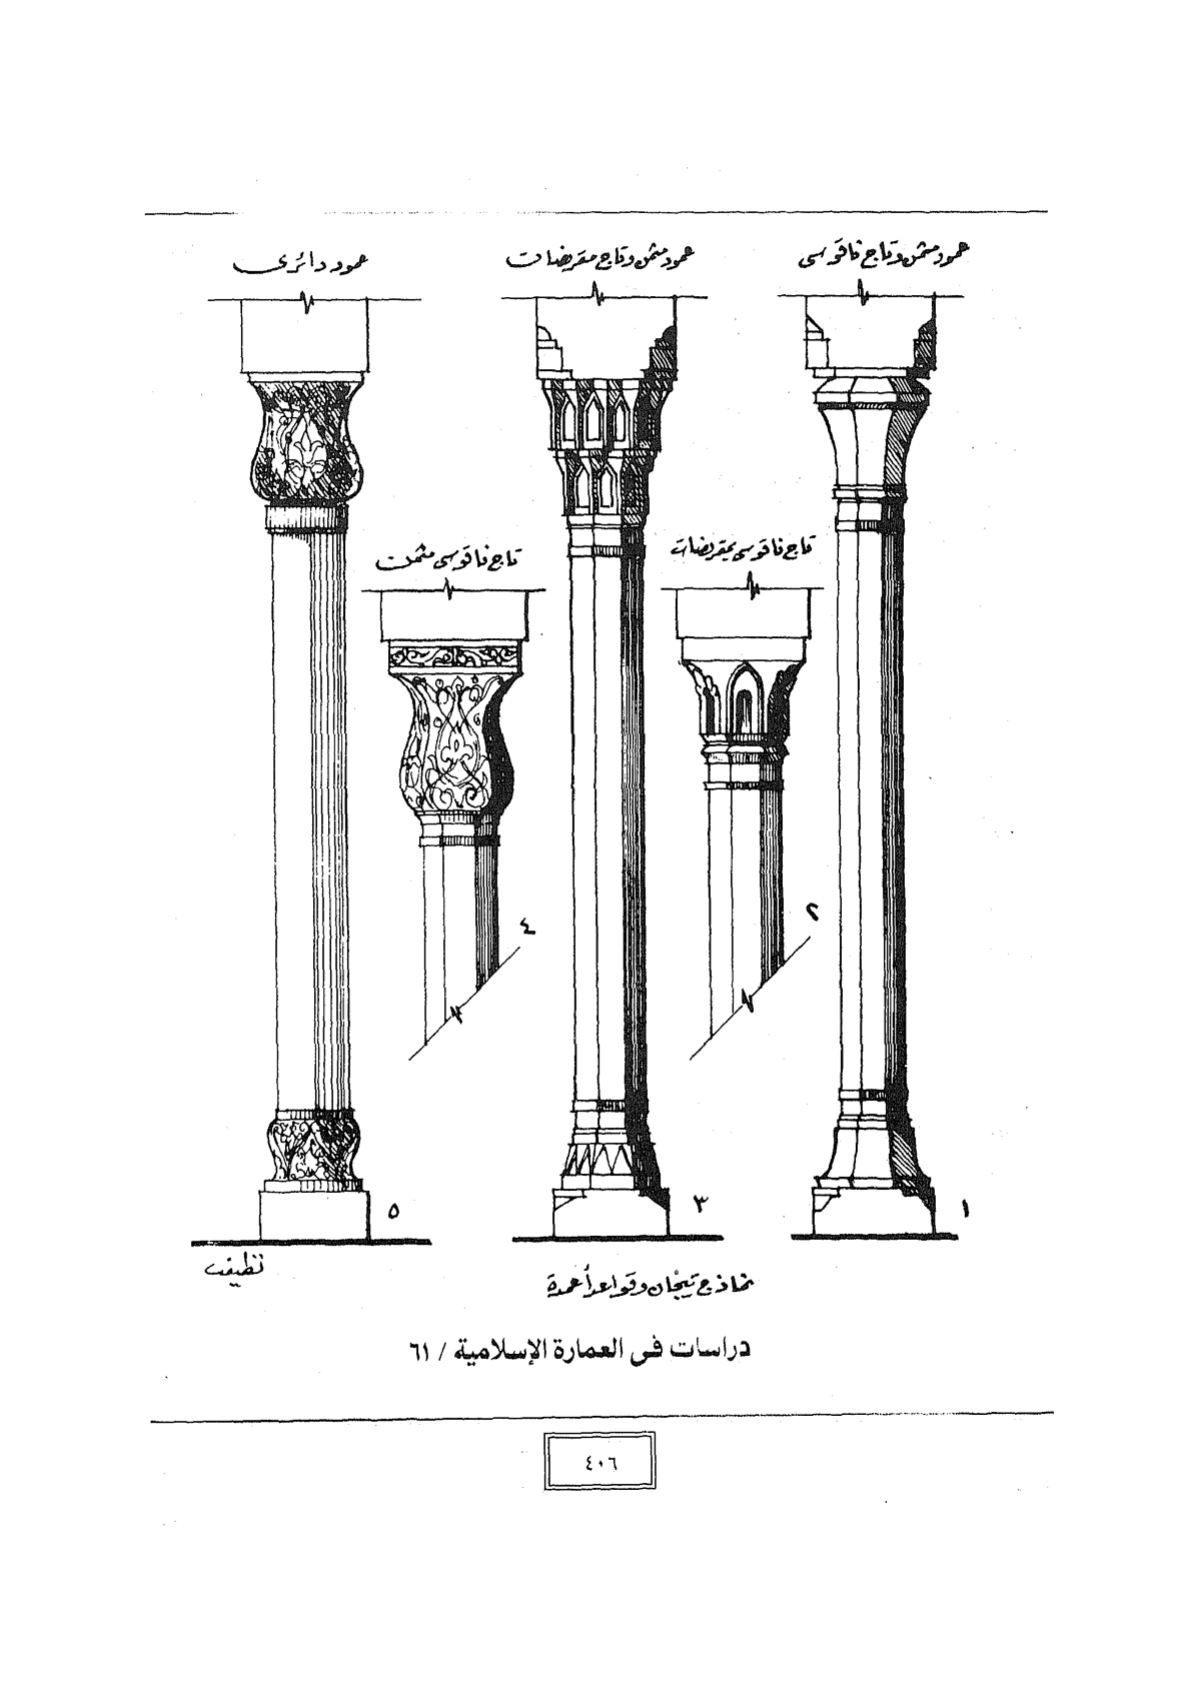 عمود مثمن وتاج ناقوسى
عمود مثمن وتاج مقرنصات
عمود دائرى
تاج ناقوسى بمقرنصات
تاج ناقوسى مثمن
٢
٤
١
٣
٥
نظيف
نماذج تيجان وقواعد أعمدة
دراسات فى العمارة الإسلامية / ٦١
٤٠٦